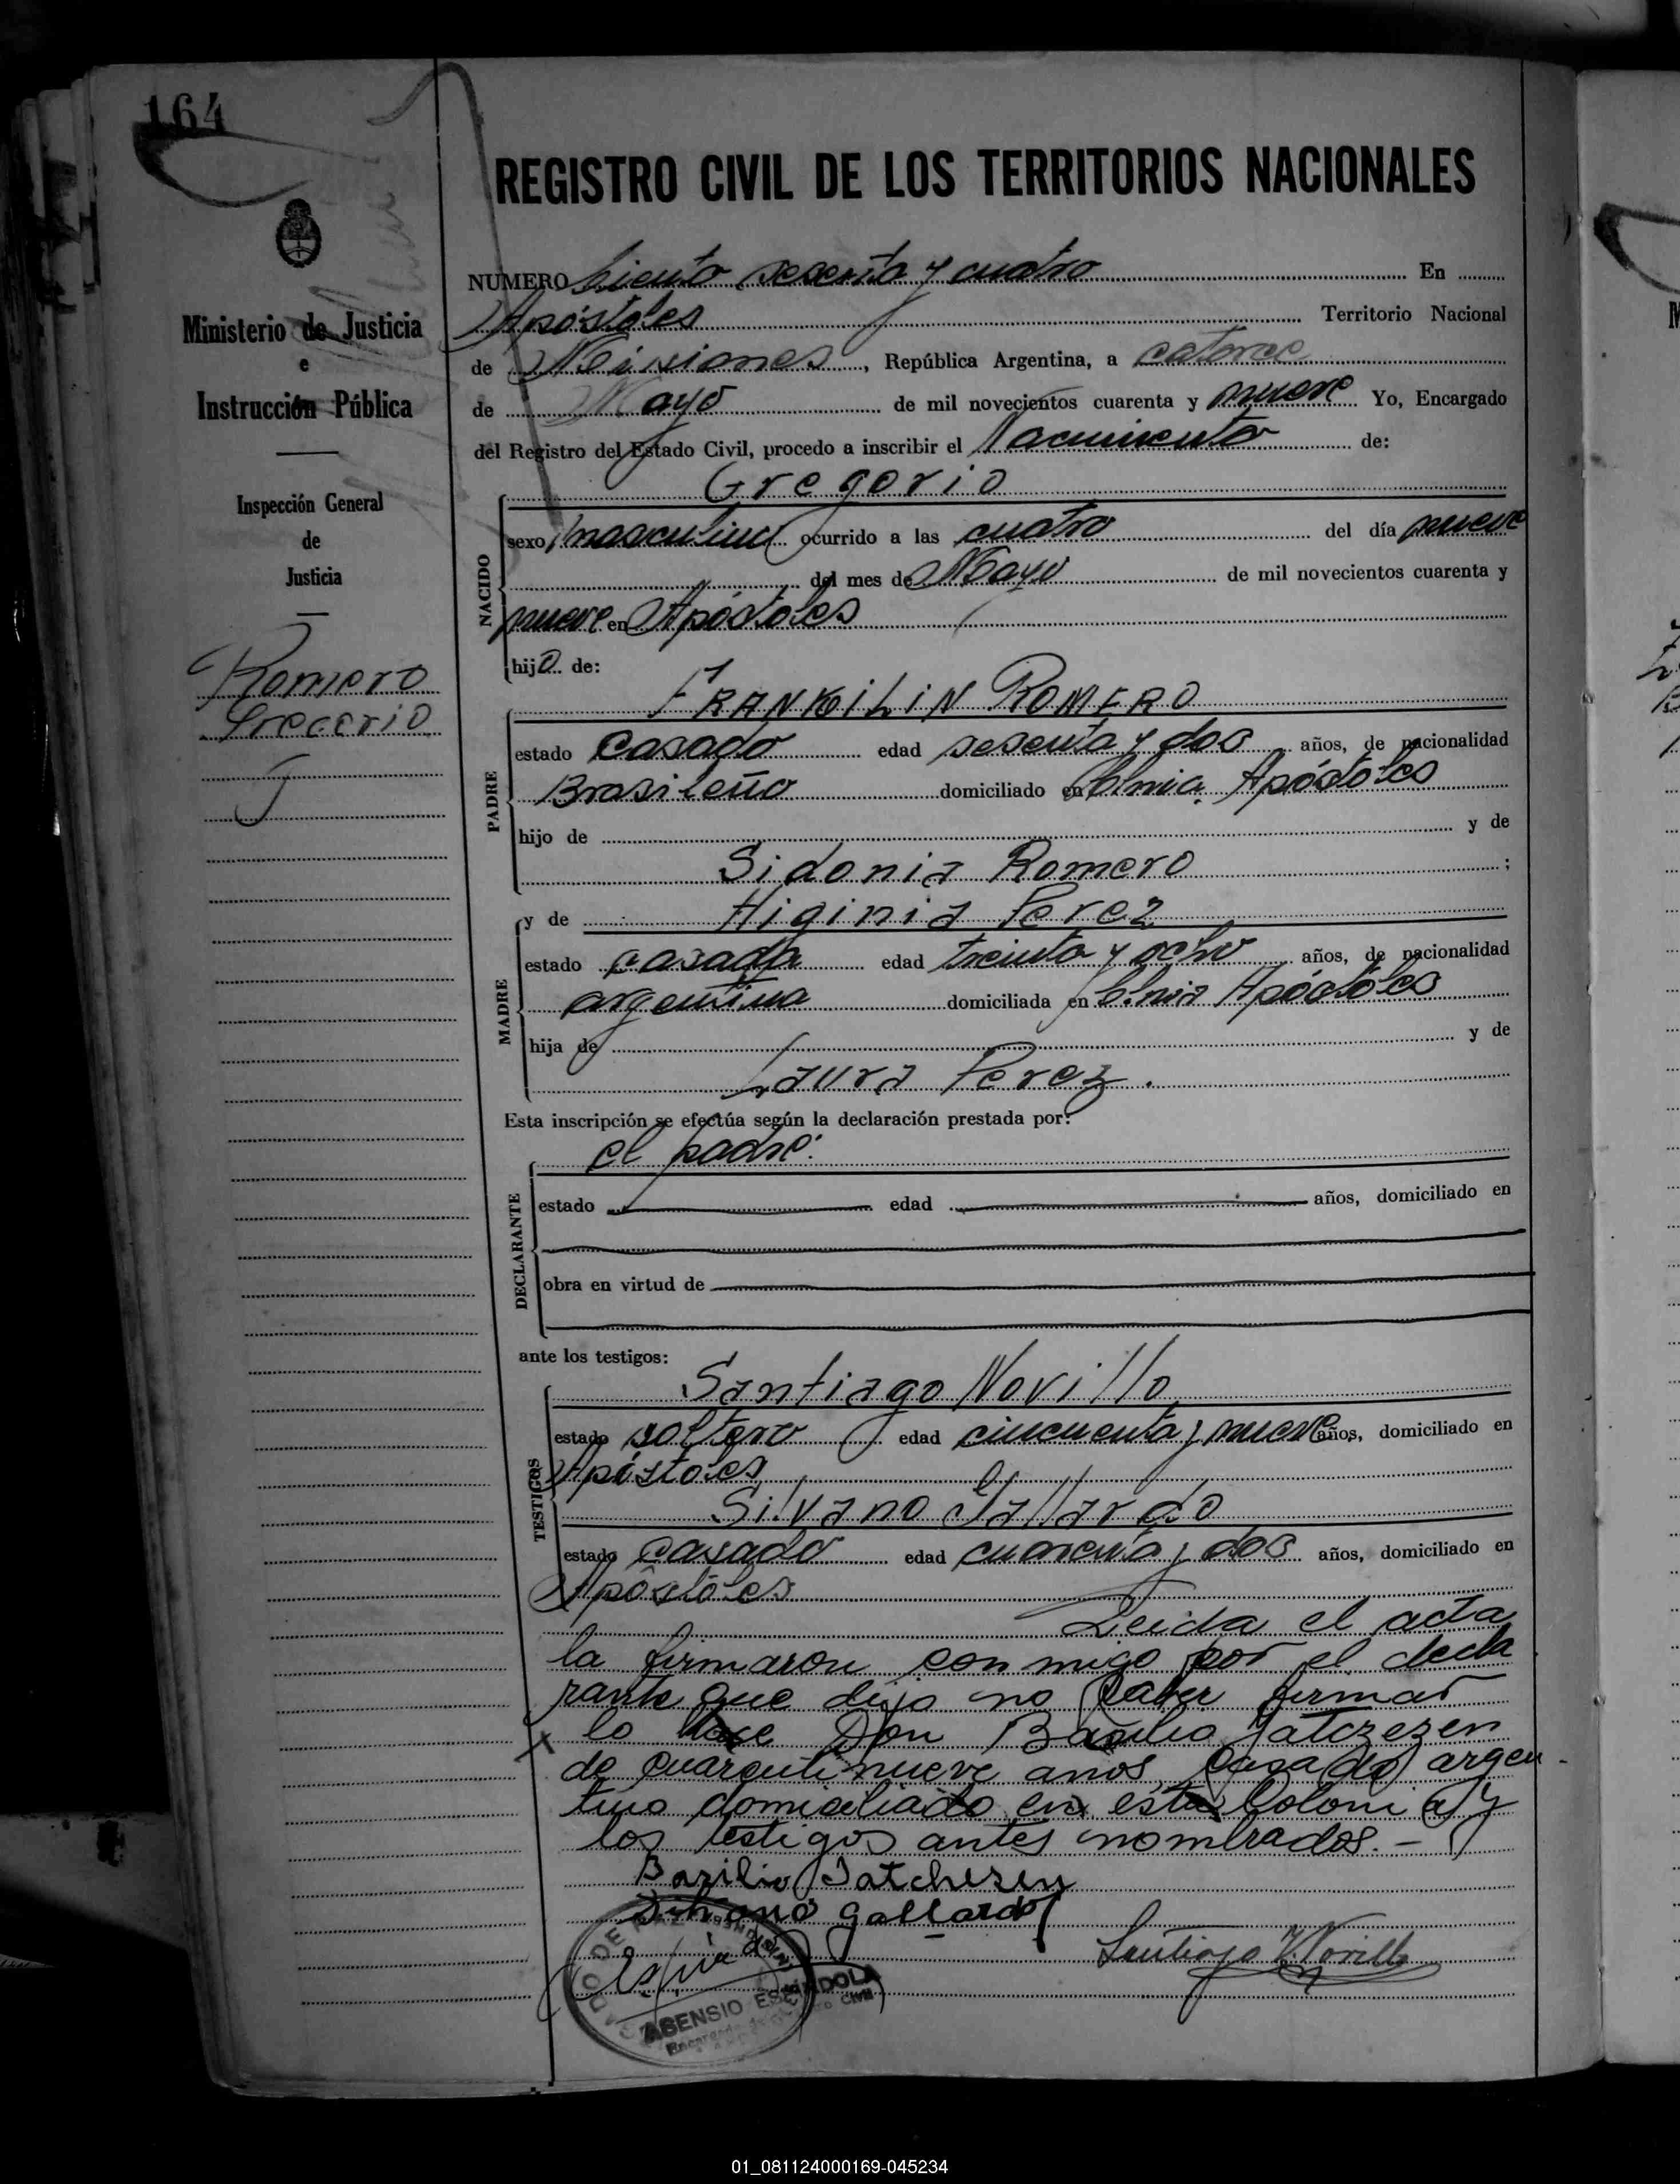 164
REGISTRO CIVIL DE LOS TERRITORIOS NACIONALES
Ministerio de Justicia
e
Instrucción Pública
Inspección General
de
Justicia
Romero
Gregorio
NUMERO Ciento sesenta y cuatro En
Apóstoles Territorio Nacional
de Misiones, República Argentina, a catorce
de Mayo de mil novecientos cuarenta y nueve Yo, Encargado
del Registro del Estado Civil, procedo a inscribir el Nacimiento de:
Gregorio
NACIDO
sexo masculino ocurrido a las cuatro del día nueve
del mes de Mayo de mil novecientos cuarenta y
nueve en Apóstoles
hijo de:
FRANKILIN ROMERO
PADRE
estado casado edad sesenta y dos años, de nacionalidad
Brasileño domiciliado en Clnia. Apóstoles
hijo de y de
Sidonia Romero ;
y de Higinia Perez
MADRE
estado casada edad treinta y ocho años, de nacionalidad
argentina domiciliada en Clnia Apóstoles
hija de y de
Laura Perez.
Esta inscripción se efectúa según la declaración prestada por:
el padre.
DECLARANTE
estado edad años, domiciliado en
obra en virtud de
ante los testigos:
Santiago Novillo
TESTIGOS
estado soltero edad cincuenta y nueve años, domiciliado en
Apóstoles
Silvano Gallardo
estado casado edad cuarenta y dos años, domiciliado en
Apóstoles
Leida el acta
la firmaron conmigo por el decla
rante que dijo no saber firmar
lo hace Don Basilio Jatczezen
de cuarentinueve anos, casado, argen-
tino domiciliado en esta Colonia y
los testigos antes nombrados.-
Bazilio Jatchezen
Silvano Gallardo
Santiago Novillo
ASENSIO ESPINDOLA
01_081124000169-045234